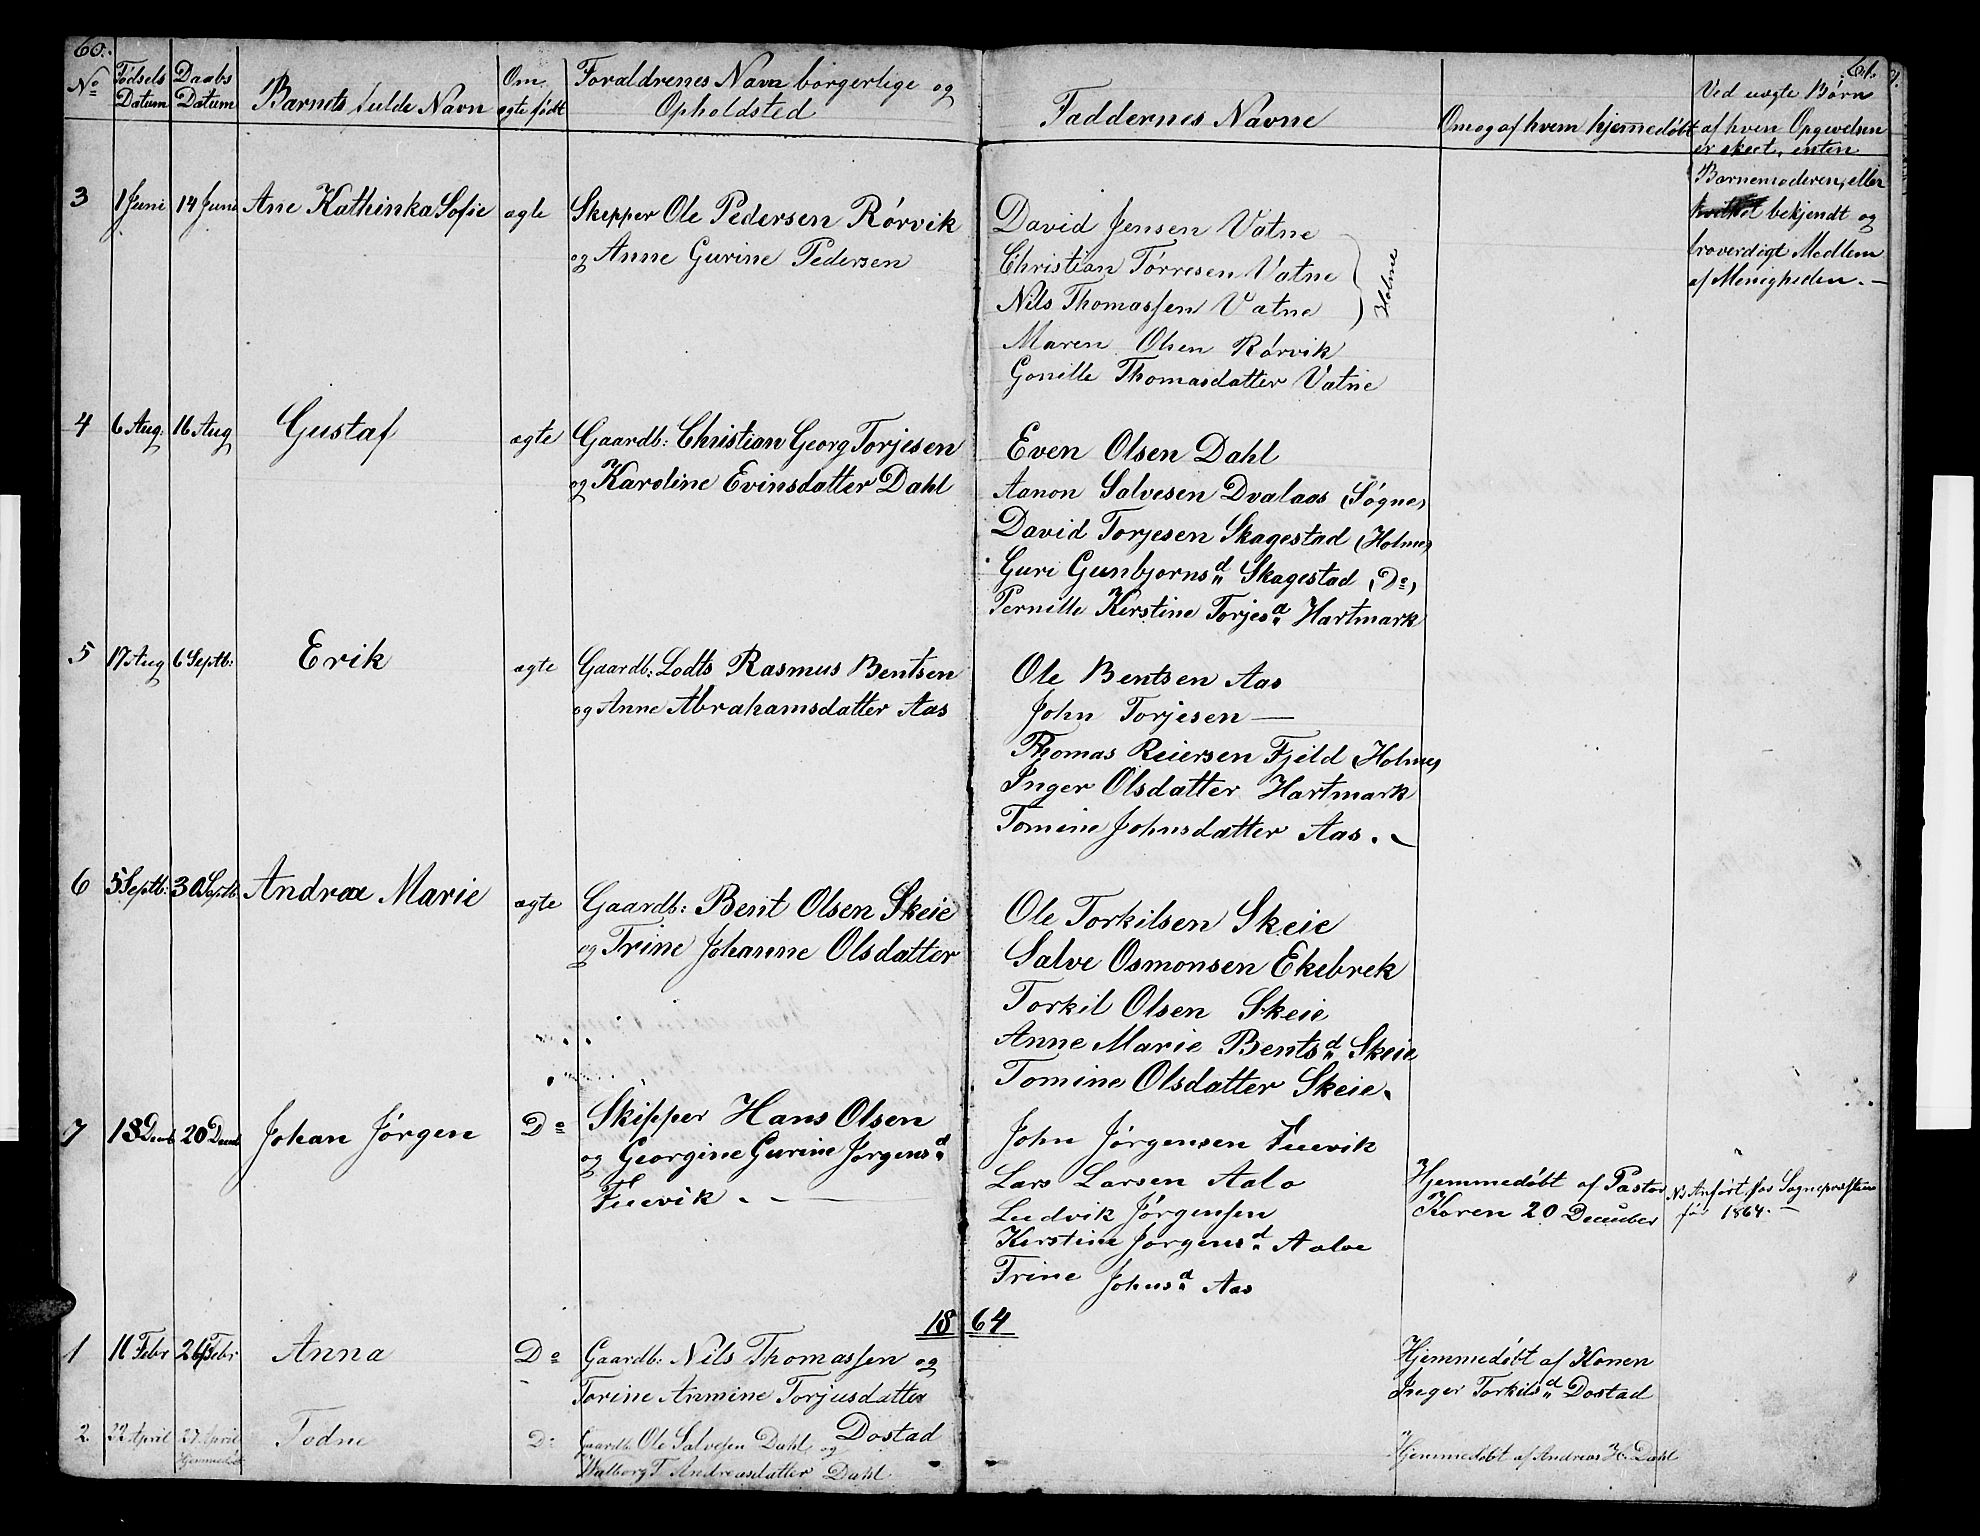 60.
61.
No
Fødsels Datum
Daabs Datum
Barnets fulde Navn
Om ægte født
Forældrenes Navn borgerlige og
Opholdsted
Faddernes Navne
Om og af hvem hjemmedøbt
Ved uægte Børn
af hven Opgivelsen
er skeet, enten
Barnemoderen, eller
bekjendt og
troverdigt Medlem
af Menigheden. –
3 1 Juni 14 Juni Ane Kathinka Sofie ægte Skipper Ole Pedersen Rørvik
og Anne Gurine Pedersen
David Jensen Vatne
Christian Tørresen Vatne
Nils Thomassen Vatne
Holme
Maren Olsen Rørvik
Gonille Thomasdatter Vatne
4 6 Aug. 16 Aug Gustaf ægte Gaardb: Christian Georg Torjesen
og Karoline Evinsdatter Dahl
Even Olsen Dahl
Aanon Salvesen Dvalaas (Søgne)
David Torjesen Skagestad (Holme)
Guri Gunbjornsd Skagestad (Do)
Pernille Kirstine Torjesd Hartmark
5 17 Aug 6 Septb: Erik ægte Gaardb: Lodts Rasmus Bentsen
og Anne Abrahamsdatter Aas
Ole Bentsen Aas
John Torjesen —
Thomas Reiersen Fjeld (Holme)
Inger Olsdatter Hartmark
Tomine Johnsdatter Aas. –
6 5 Septb: 30 Septb Andrea Marie ægte Gaardb: Bent Olsen Skeie
og Trine Johanne Olsdatter
Ole Torkilsen Skeie
Salve Osmonsen Ekebrek
Torkil Olsen Skeie
Anne Marie Bentsd Skeie
Tomine Olsdatter Skeie.
7 13 Decb 20 Decmb Johan Jørgen Do Skipper Hans Olsen
og Georgine Gurine Jørgensd
Fuevik. – —
John Jørgensen Fuevik
Lars Larsen Aalo
Ludvik Jørgensen
Kirstine Jørgensd Aalve
Trine Johnsd Aas
Hjemmedøbt af Pastor
Koren 20 December
NB Anført for Sognepræsten
for 1864. –
1864
1 11 Febr 26 Febr Anna Do Gaardb: Nils Thomassen og
Torine Anmine Torjusdatter
Dostad
Hjemmedøbt af Konen
Inger Torkilsd Dostad
2. 22 April 27 April Hjemmedøbt Todne Do Gaardb. Ole Salvesen Dahl og
Walborg T. Andreasdatter Dahl
Hjemmedøbt af Andreas H. Dahl